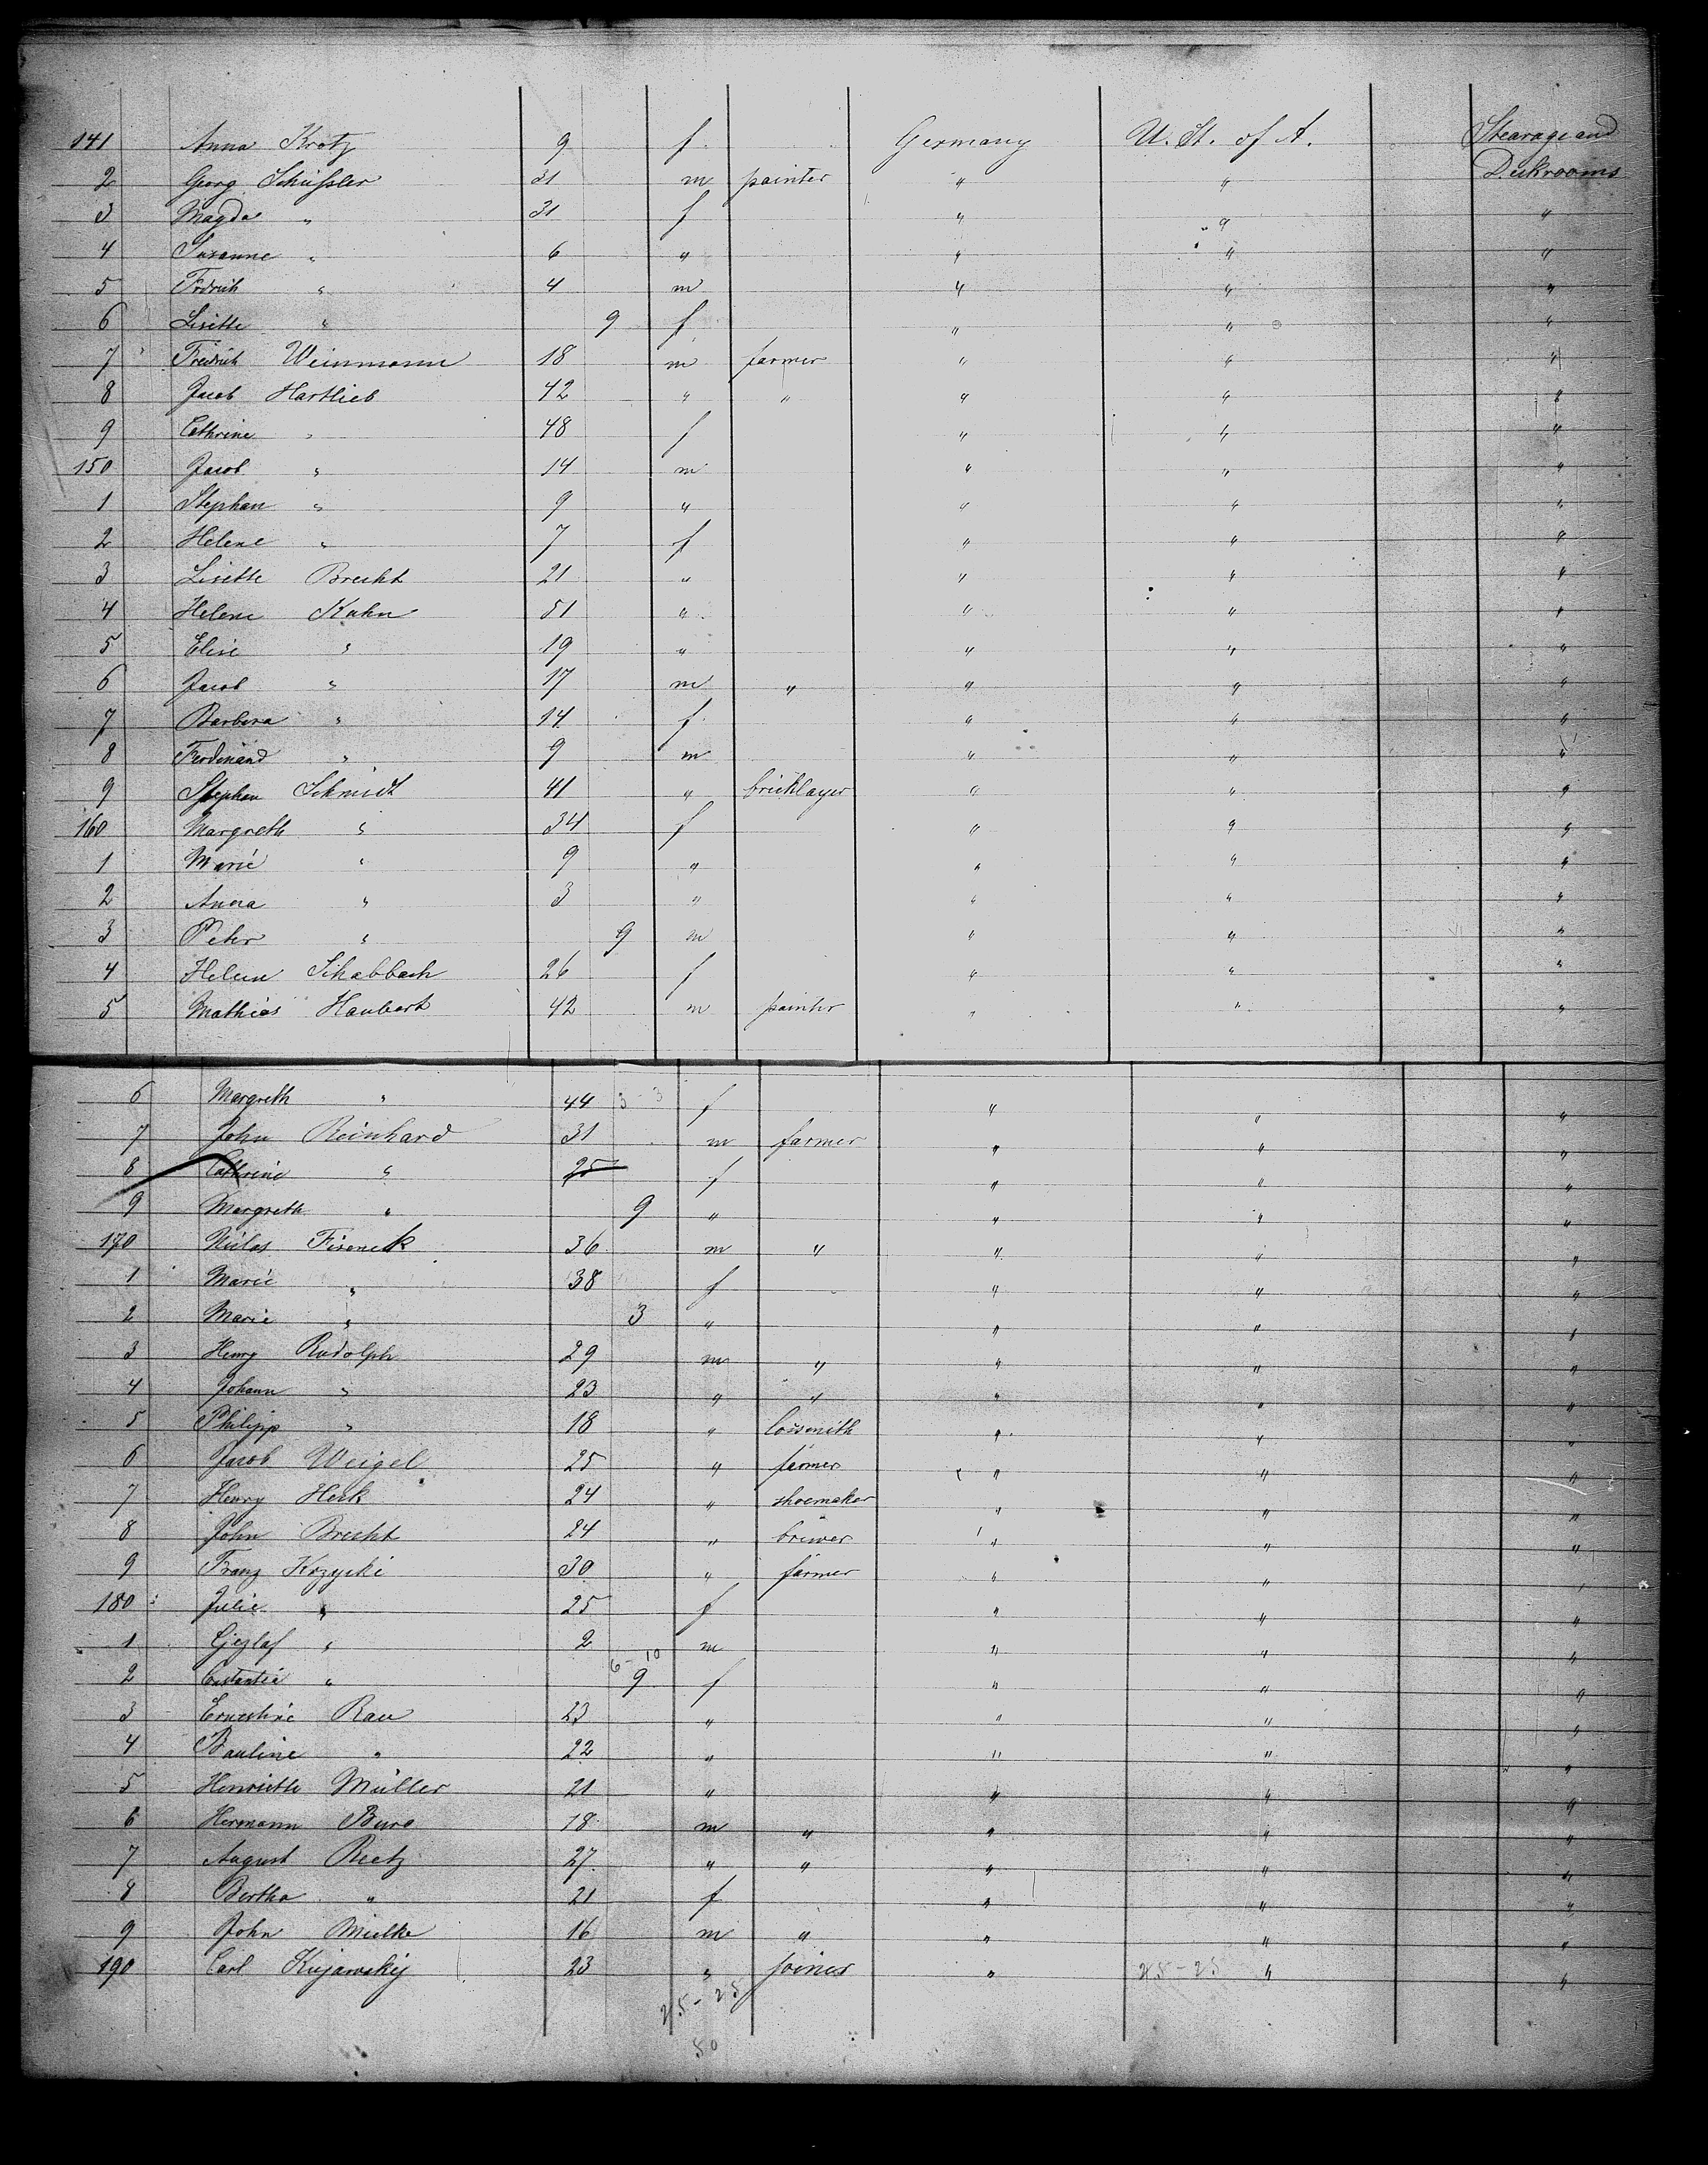 141 Anna Krotz 9 f. Germany U. St. of A. Stearage and
2 Georg Schüssler 31 m painter " " Deckrooms
3 Magda " 31 f " " "
4 Susanne " 6 " " " "
5 Fridrich " 4 m " " "
6 Lisette " 9 f " " "
7 Freidrich Weinmann 18 m farmer " " "
8 Jacob Hartlieb 42 " " " " "
9 Cathrine " 48 f " " "
150 Jacob " 14 m " " "
1 Stephan " 9 " " " "
2 Helene " 7 f " " "
3 Lisette Brecht 21 " " " "
4 Helene Kahn 51 " " " "
5 Elise " 19 " " " "
6 Jacob " 17 m " " " "
7 Barbera " 14 f. " " "
8 Ferdinand " 9 m " " "
9 Stephan Schmidt 41 " bricklayer " " "
160 Margreth " 34 f " " "
1 Marie " 9 " " " "
2 Anna " 3 " " " "
3 Peter " 9 m " " "
4 Helene Schabbach 26 f " " "
5 Mathias Haubert 42 m painter " " "
6 Margreth " 44 3-3 f " " "
7 John Reinhard 31 m farmer " " "
8 Cathrine " 25 f " " "
9 Margreth " 9 " " " "
170 Niclas Fisenick 36 m " " " "
1 Marie " 38 f " " "
2 Marie " 3 " " " "
3 Henry Rudolph 29 m " " " "
4 Johann " 23 " " " " "
5 Philipp " 18 " locsmith " " "
6 Jacob Weigel 25 " farmer " " "
7 Henry Heck 24 " shoemaker " " "
8 John Brecht 24 " brewer " " "
9 Franz Krzycki 30 " farmer " " "
180 Julie " 25 f " " "
1 " 2 m " " "
6-10
2 " 9 f " " "
3 Ernestine Rau 23 " " " "
4 Pauline " 22 " " " "
5 Henriette Müller 21 " " " "
6 Hermann 18 m " " " "
7 August Rietz 27 " " " " "
8 Bertha " 21 f " " "
9 John Mielke 16 m " " " "
190 Carl Kujawskij 23 " joiner " 25-25 " "
25-25
50